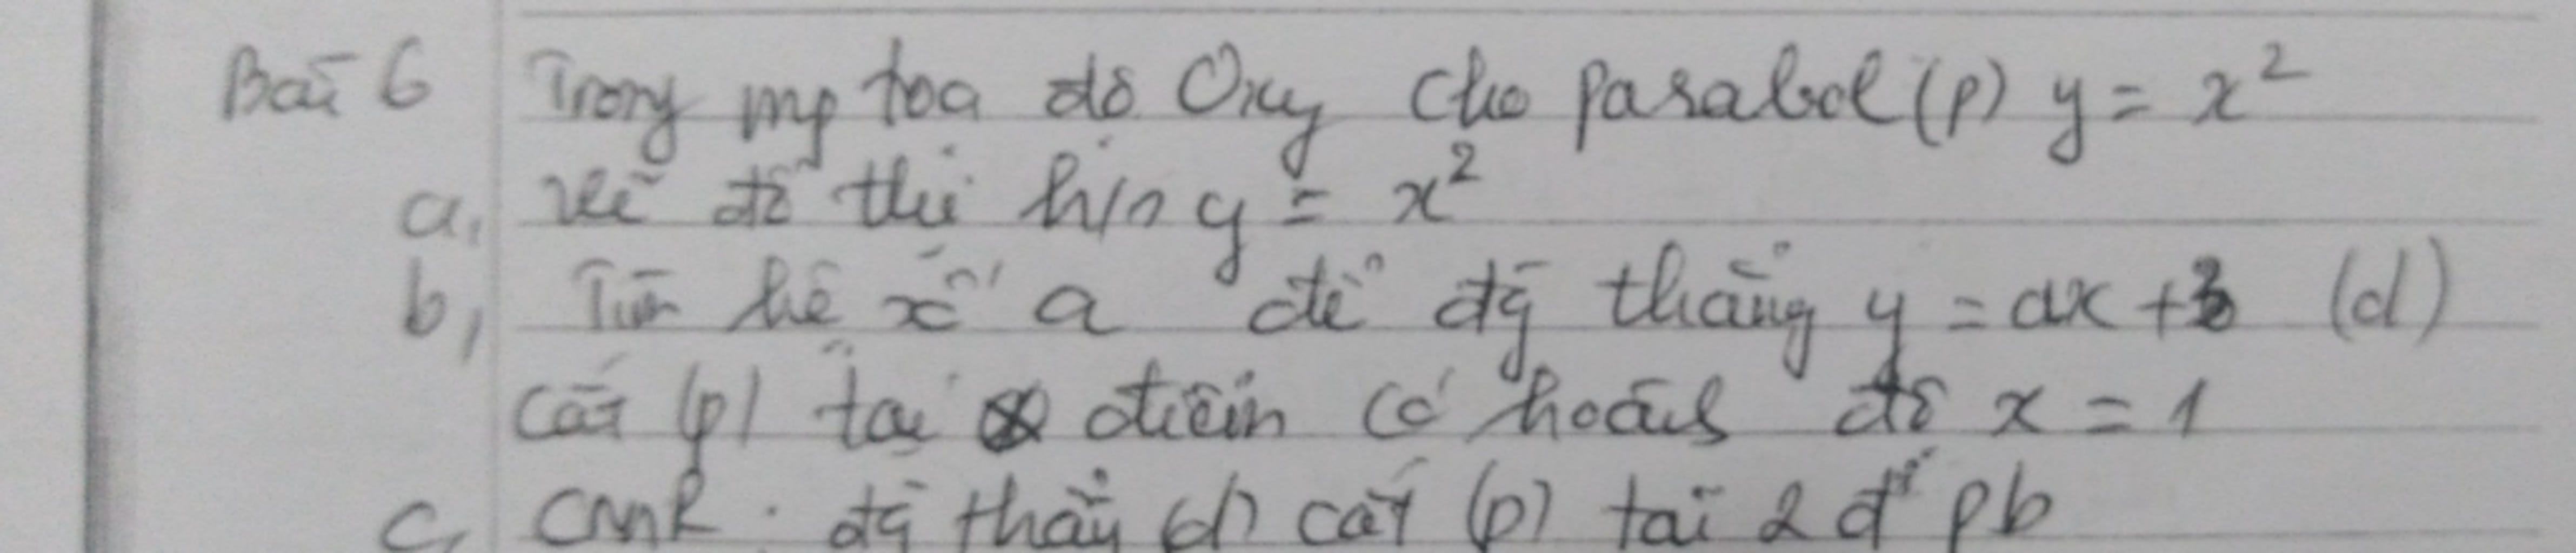 Bài 6 Trong mp toạ độ Oxy cho parabol (p) y = x²
a, vẽ đồ thị h/n y = x²
b, Tìm hệ số a để đg thẳng y = ax + 3 (d)
cắt (p) tại điểm có hoành độ x = 1
c, CMR : đg thẳng (d) cắt (p) tại 2 đ' pb